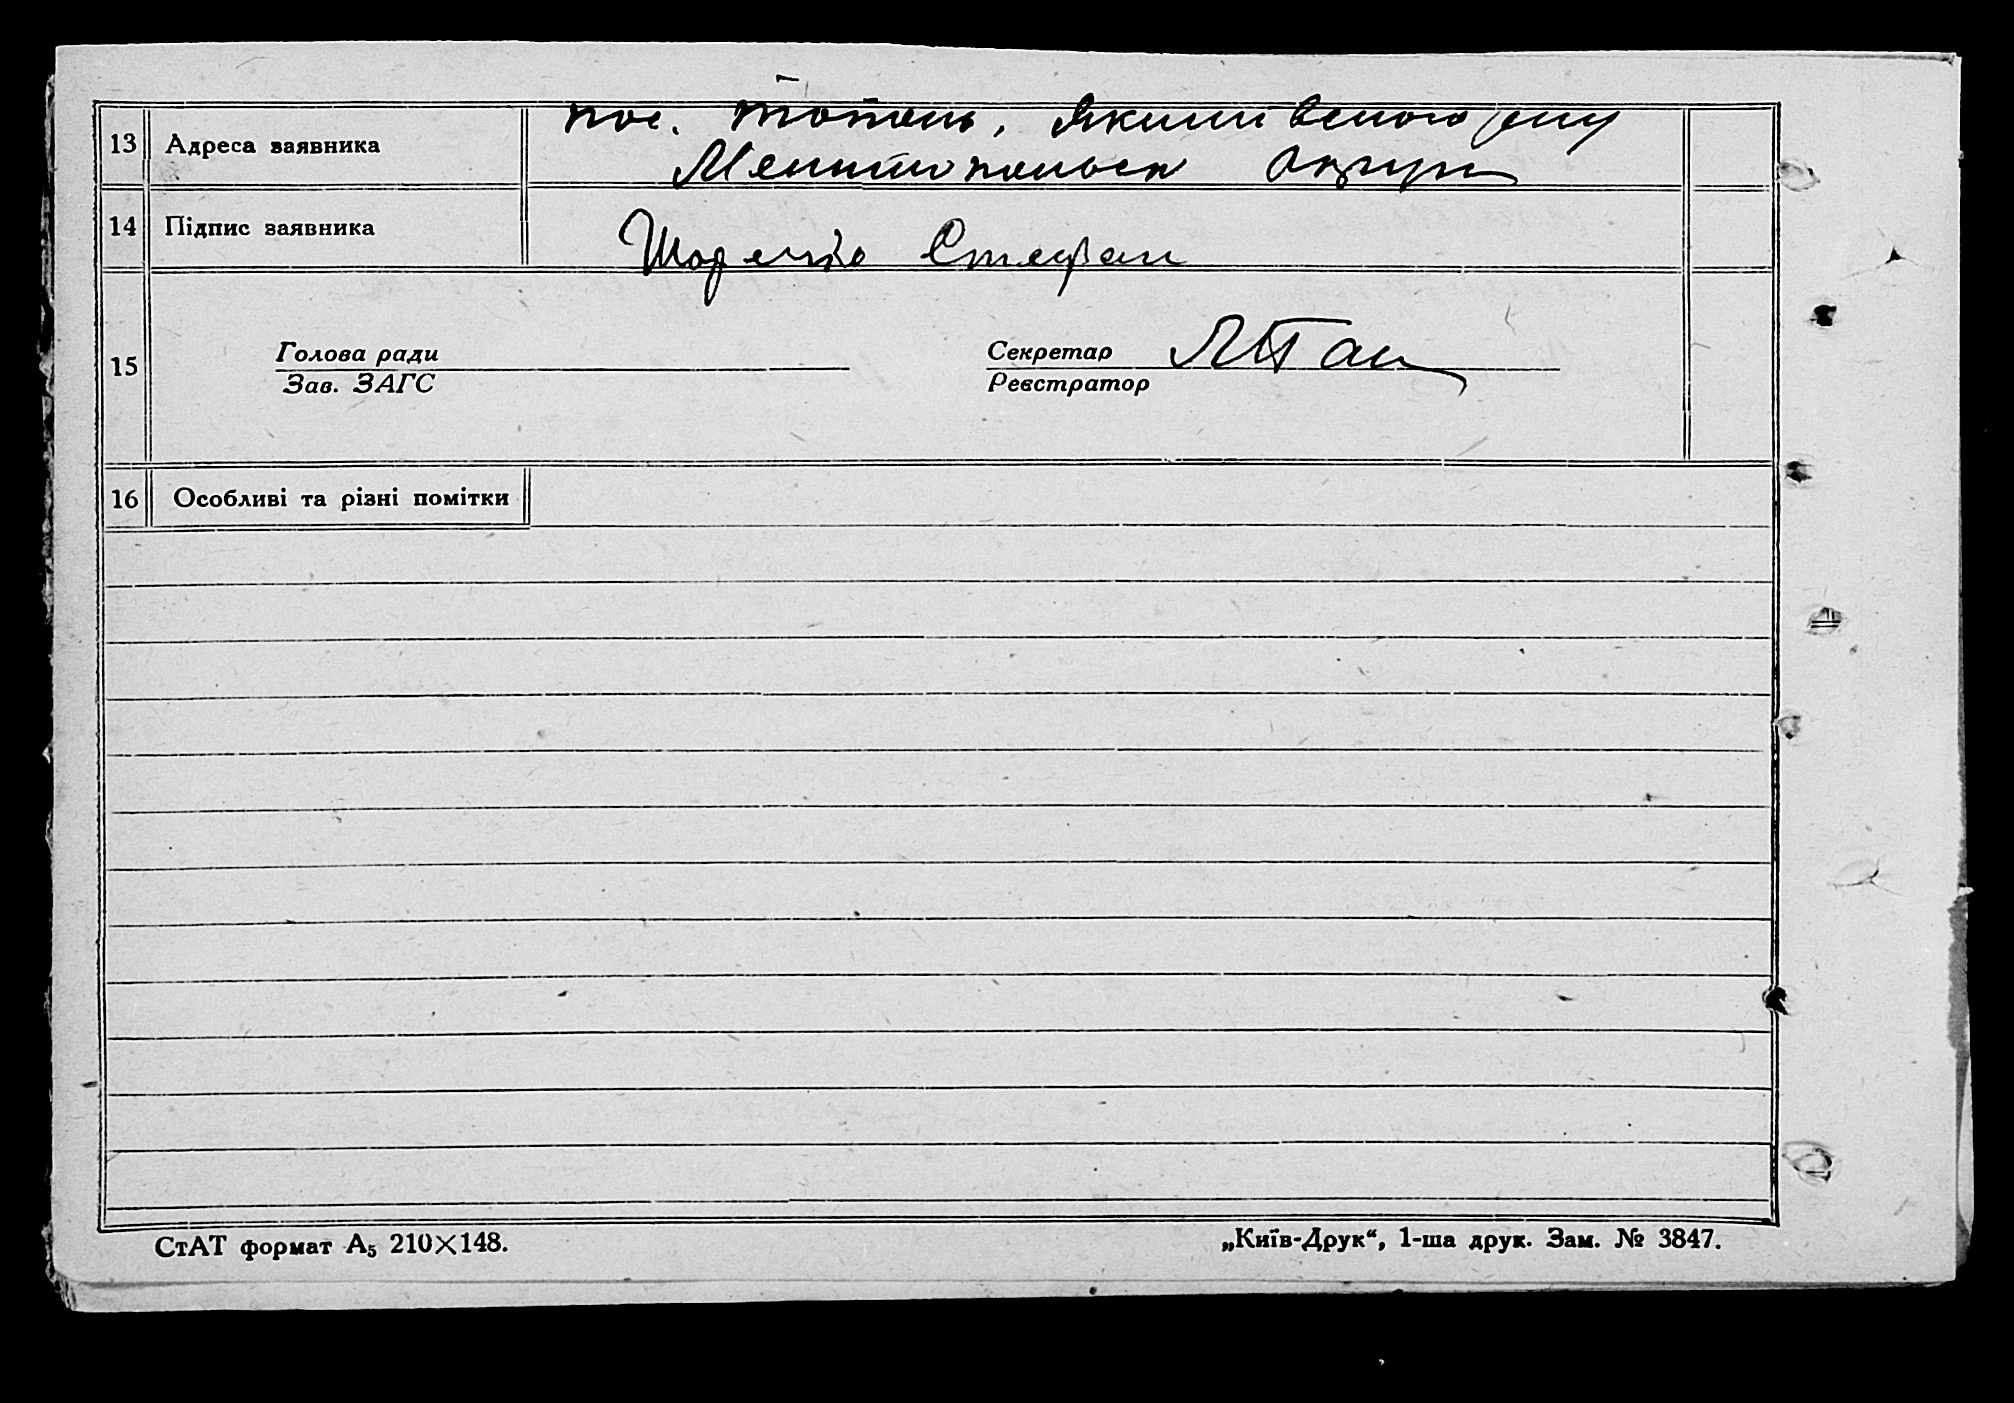 13 Адреса заявника пос. Якимівського р-ну
Мелитопольск округи
14 Підпис заявника Стефан
15 Голова ради Секретар
Зав. ЗАГС Реєстратор
16 Особливі та різні помітки
СтАТ формат А₅ 210×148. „Київ-Друк“, 1-ша друк. Зам. № 3847.